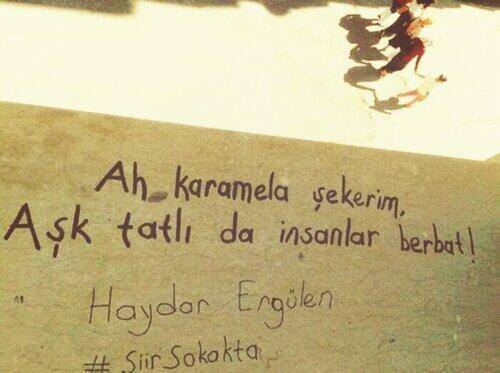 Ah karamela şekerim,
Aşk tatlı da insanlar berbat!
Haydar Ergülen
# Şiir Sokakta